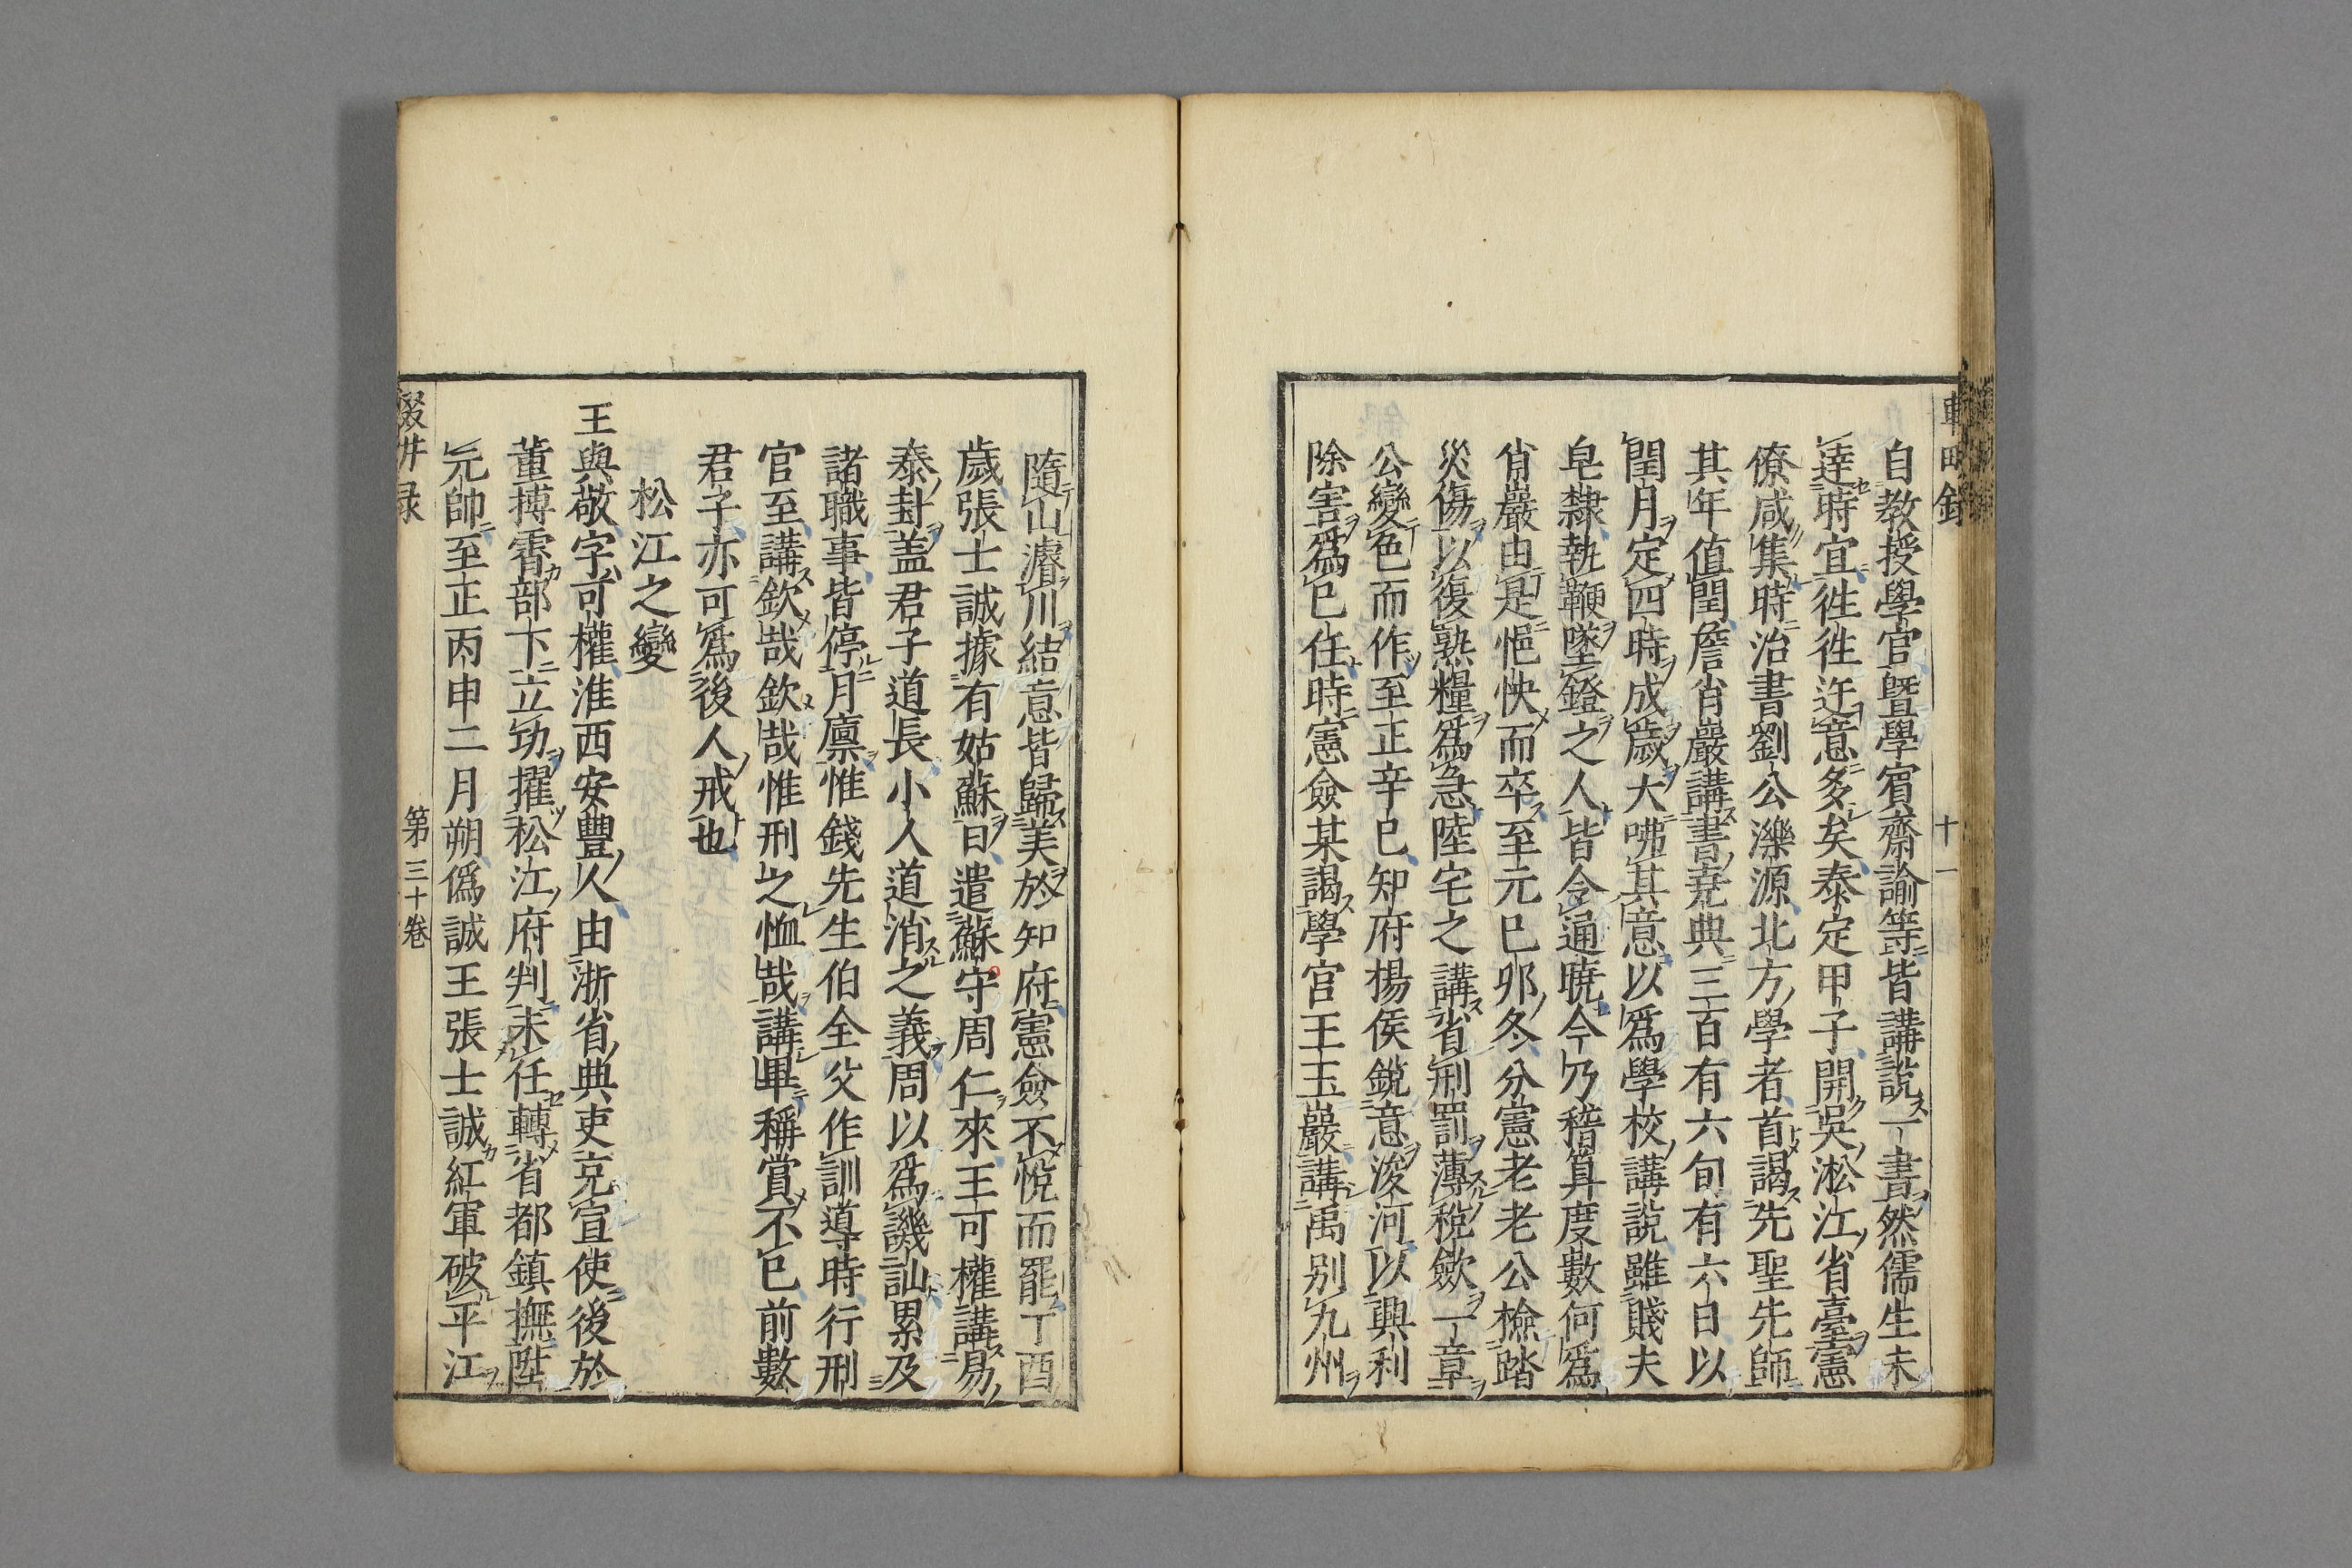 自教授學官曁學賓齋諭等皆講說一書然儒生未
達時宜徃徃迕意多矣泰定甲子開吳淞江省臺憲
僚咸集時治書劉公濼源北方學者首謁先聖先師
其年值閏詹肖巖講書堯典三百有六旬有六日以
閏月定四時成歲大咈其意以爲學校講說雖賤夫
皂隸執鞭墜鐙之人皆令通曉今乃稽算度數何爲
肖巖由是悒怏而卒至元己夘冬分憲老老公檢踏
災傷以復熟糧爲急陸宅之講省刑罰薄稅歛一章
公變色而作至正辛巳知府楊侯銳意浚河以興利
除害爲已任時憲僉某謁學官王玉巖講禹別九州
隨山濬川結意皆歸美於知府憲僉不悅而罷丁酉
歲張士誠據有姑蘇日遣蘇守周仁來王可權講易
泰封盖君子道長小人道消之義周以爲譏訕累及
諸職事皆停月廪惟錢先生伯全父作訓導時行刑
官至講欽哉欽哉惟刑之恤哉講畢稱賞不已前數
君子亦可爲後人戒也
松江之變
王與敬字可權淮西安豐人由浙省典吏充宣使後於
董摶霄部下立功擢松江府判未任轉省都鎮撫陞
元帥至正丙申二月朔僞誠王張士誠紅軍破平江
第三十卷
十一